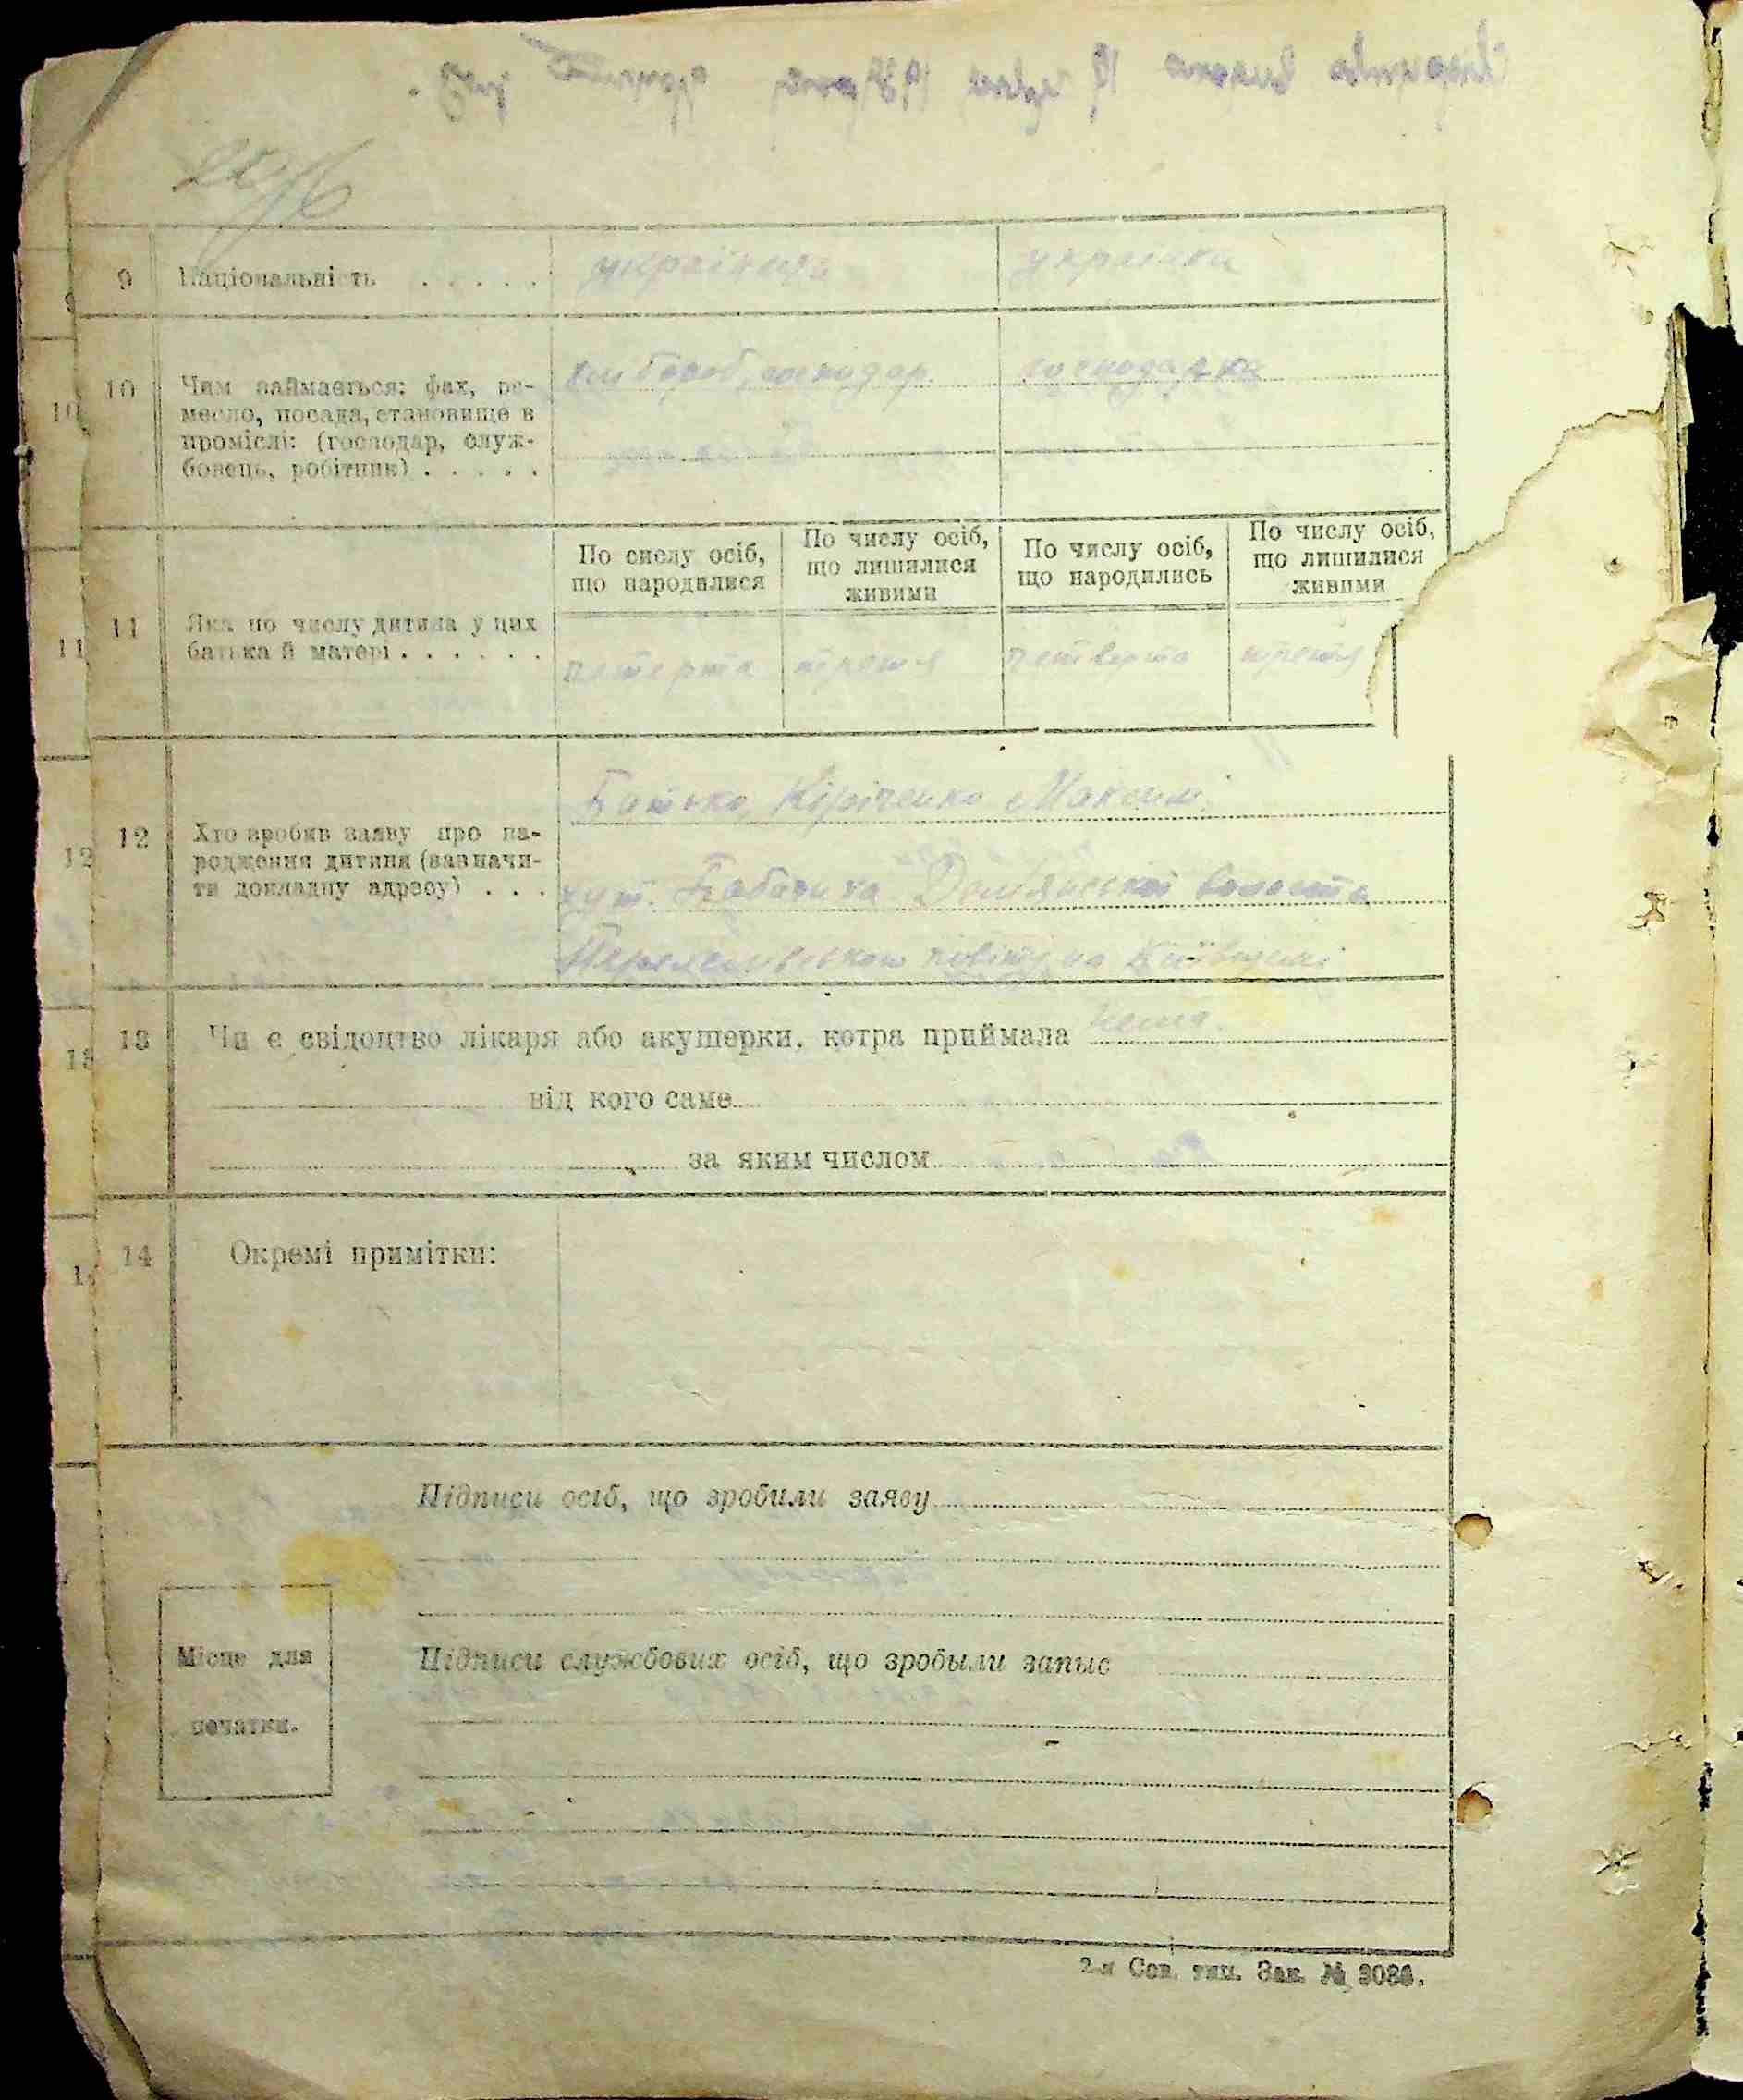 9 Національність . . . . . українець українка
10 Чим займається: фах, ре-
месло, посада, становище в
промислі: (господар, служ-
бовець, робітник) . . . . .
хлібороб, господар. господарка
По числу осіб,
що народилися
По числу осіб,
що лишилися
живими
По числу осіб,
що народились
По числу осіб,
що лишилися
живими
11 Яка по числу дитина у цих
батька й матері . . . . . .
четверта третя четверта третя
12 Хто зробив заяву про на-
родження дитини (зазначи-
ти докладну адресу) . . .
Батько, Кіріченко Максим.
хут. Бабачиха Демʼянської волости
Переяславського повіту на Київщині
13 Чи є свідоцтво лікаря або акушерки, котра приймала нема.
від кого саме
за яким числом
14 Окремі примітки:
Підписи осіб, що зробили заяву
Місце для
печатки.
Підписи службових осіб, що зробыли запыс
2-я Сов. тип. Зак. №
9
10
11
12
13